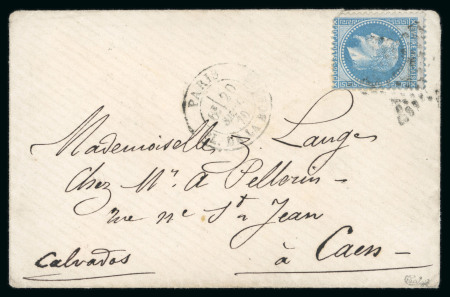 PARIS
Mademoiselle Z. Lange
Chez Mr. A Pellerin
rue ne St Jean
à Caen
Calvados